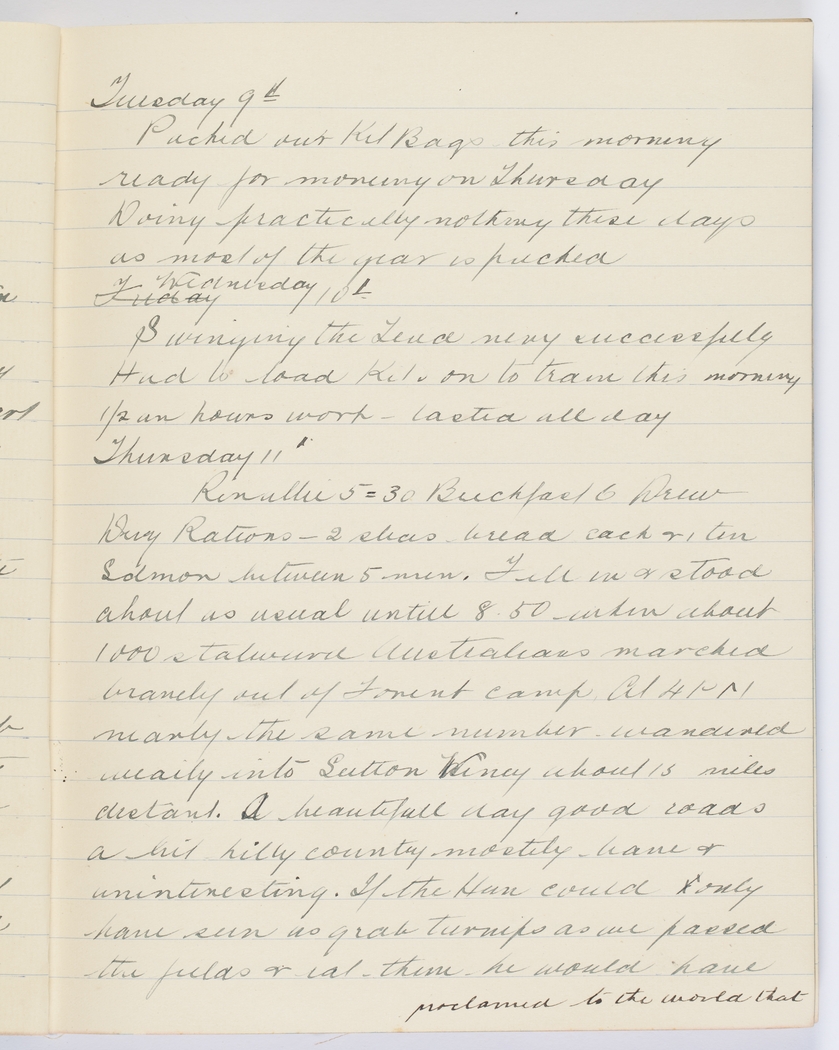 Tuesday 9th
Packed our Kit Bags this morning
ready for moveing on Thursday
Doing practically nothing these days
as most of the gear is packed
Friday Wednesday 10th
Swinging the Lead very successfully
Had to load Kits on to train this morning
1/2 an hours work - lasted all day
Thursday 11th
Revallie 5=30 Breckfast 6 Drew
Day Rations - 2 slices bread each & 1 tin
Salmon between 5 men. Fell in & stood
about as usual untill 8.50 when about
1000 stalward Australians marched
bravely out of Fovent camp. At 4 PM
nearly the same number wandered
wearily into Sutton Veney about 15 miles
distant. A beautifull day good roads
a bit hilly county mostely bare &
uninteresting. If the Hun could only
have seen us grab turnips as we passed
the fields & eat them he would have
proclamed to the world that